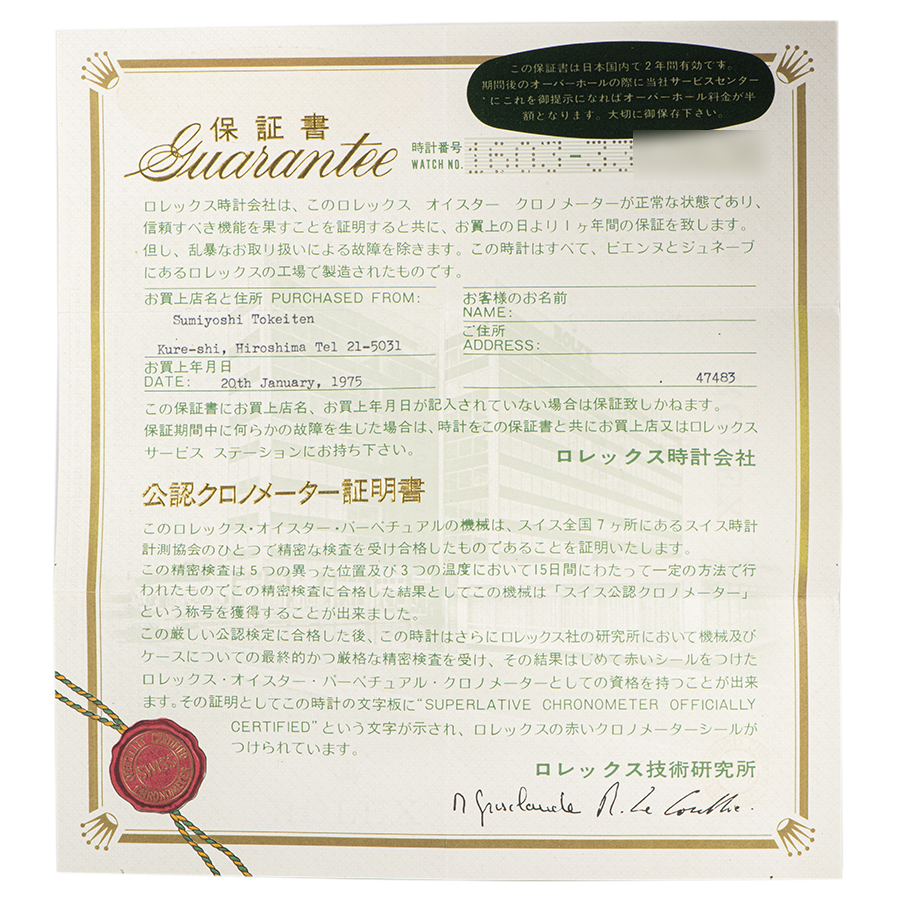 この保証書は日本国内で2年間有効です。
期間後のオーバーホールの際に当社サービスセンター
にこれを御提示になればオーバーホール料金が半
額となります。大切に御保存下さい。
保証書
Guarantee
時計番号
WATCH NO.
ロレックス時計会社は、このロレックス オイスター クロノメーターが正常な状態であり、
信頼すべき機能を果すことを証明すると共に、お買上の日より1ヶ年間の保証を致します。
但し、乱暴なお取り扱いによる故障を除きます。この時計はすべて、ビエンヌとジュネーブ
にあるロレックスの工場で製造されたものです。
お買上店名と住所 PURCHASED FROM:
Sumiyoshi Tokeiten
Kure-shi, Hiroshima Tel 21-5031
お買上年月日
DATE: 20th January, 1975
お客様のお名前
NAME:
ご住所
ADDRESS:
47483
この保証書にお買上店名、お買上年月日が記入されていない場合は保証致しかねます。
保証期間中に何らかの故障を生じた場合は、時計をこの保証書と共にお買上店又はロレックス
サービス ステーションにお持ち下さい。
ロレックス時計会社
公認クロノメーター証明書
このロレックス・オイスター・パーペチュアルの機械は、スイス全国7ヶ所にあるスイス時計
計測協会のひとつで精密な検査を受け合格したものであることを証明いたします。
この精密検査は5つの異った位置及び3つの温度において15日間にわたって一定の方法で行
われたものでこの精密検査に合格した結果としてこの機械は「スイス公認クロノメーター」
という称号を獲得することが出来ました。
この厳しい公認検定に合格した後、この時計はさらにロレックス社の研究所において機械及び
ケースについての最終的かつ厳格な精密検査を受け、その結果はじめて赤いシールをつけた
ロレックス・オイスター・パーペチュアル・クロノメーターとしての資格を持つことが出来
ます。その証明としてこの時計の文字板に"SUPERLATIVE CHRONOMETER OFFICIALLY
CERTIFIED"という文字が示され、ロレックスの赤いクロノメーターシールが
つけられています。
ロレックス技術研究所
SWISS